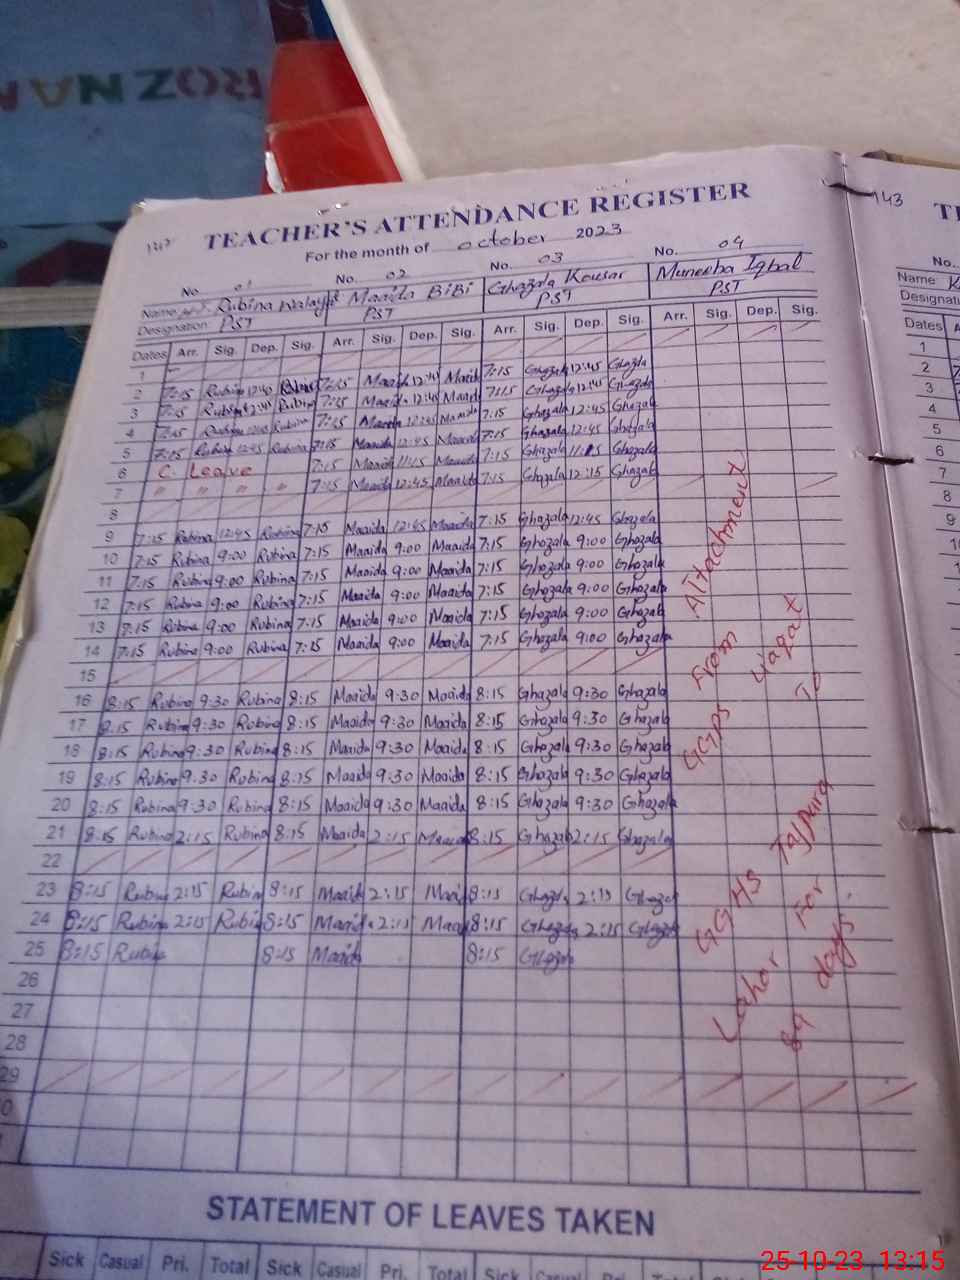 ROZNAN
143
TEACHER'S ATTENDANCE REGISTER
For the month of october 2023
No. 01 No. 02 No. 03 No. 04
Name: Rubina Walayat Maaida BiBi Ghazala Kousar Muneeba Iqbal
Designation: PST PST PST PST
Dates Arr. Sig. Dep. Sig. Arr. Sig. Dep. Sig. Arr. Sig. Dep. Sig. Arr. Sig. Dep. Sig.
1
2 7:15 Rubina 12:40 Rubina 7:15 Maaida 12:45 Maaida 7:15 Ghazala 12:45 Ghazala
3 7:15 Rubina 12:45 Rubina 7:15 Maaida 12:45 Maaida 7:15 Ghazala 12:45 Ghazala
4 7:15 Rubina Rubina 7:15 Maaida 12:45 Maaida 7:15 Ghazala 12:45 Ghazala
5 7:15 Rubina 12:45 Rubina 7:15 Maaida 12:45 Maaida 7:15 Ghazala 12:45 Ghazala
6 C. Leave 7:15 Maaida 11:15 Maaida 7:15 Ghazala 11:15 Ghazala
7 " " " " 7:15 Maaida 12:45 Maaida 7:15 Ghazala 12:15 Ghazala
8
9 7:15 Rubina 12:45 Rubina 7:15 Maaida 12:45 Maaida 7:15 Ghazala 12:45 Ghazala
10 7:15 Rubina 9:00 Rubina 7:15 Maaida 9:00 Maaida 7:15 Ghazala 9:00 Ghazala
11 7:15 Rubina 9:00 Rubina 7:15 Maaida 9:00 Maaida 7:15 Ghazala 9:00 Ghazala
12 7:15 Rubina 9:00 Rubina 7:15 Maaida 9:00 Maaida 7:15 Ghazala 9:00 Ghazala
13 7:15 Rubina 9:00 Rubina 7:15 Maaida 9:00 Maaida 7:15 Ghazala 9:00 Ghazala
14 7:15 Rubina 9:00 Rubina 7:15 Maaida 9:00 Maaida 7:15 Ghazala 9:00 Ghazala
15
16 8:15 Rubina 9:30 Rubina 8:15 Maaida 9:30 Maaida 8:15 Ghazala 9:30 Ghazala
17 8:15 Rubina 9:30 Rubina 8:15 Maaida 9:30 Maaida 8:15 Ghazala 9:30 Ghazala
18 8:15 Rubina 9:30 Rubina 8:15 Maaida 9:30 Maaida 8:15 Ghazala 9:30 Ghazala
19 8:15 Rubina 9:30 Rubina 8:15 Maaida 9:30 Maaida 8:15 Ghazala 9:30 Ghazala
20 8:15 Rubina 9:30 Rubina 8:15 Maaida 9:30 Maaida 8:15 Ghazala 9:30 Ghazala
21 8:15 Rubina 2:15 Rubina 8:15 Maaida 2:15 Maaida 8:15 Ghazala 2:15 Ghazala
22
23 8:15 Rubina 2:15 Rubina 8:15 Maaida 2:15 Maaida 8:15 Ghazala 2:15 Ghazala
24 8:15 Rubina 2:15 Rubina 8:15 Maaida 2:15 Maaida 8:15 Ghazala 2:15 Ghazala
25 8:15 Rubina 8:15 Maaida 8:15 Ghazala
26
27
28
29
Attachment
From
GGPS Liaqat
To
GGHS Tajpura
Lahor For
89 days
STATEMENT OF LEAVES TAKEN
Sick Casual Pri. Total Sick Casual Pri. Total Sick Casual Pri.
143
No.
Name:
Dates
1
2
3
4
5
6
7
8
9
25-10-23 13:15